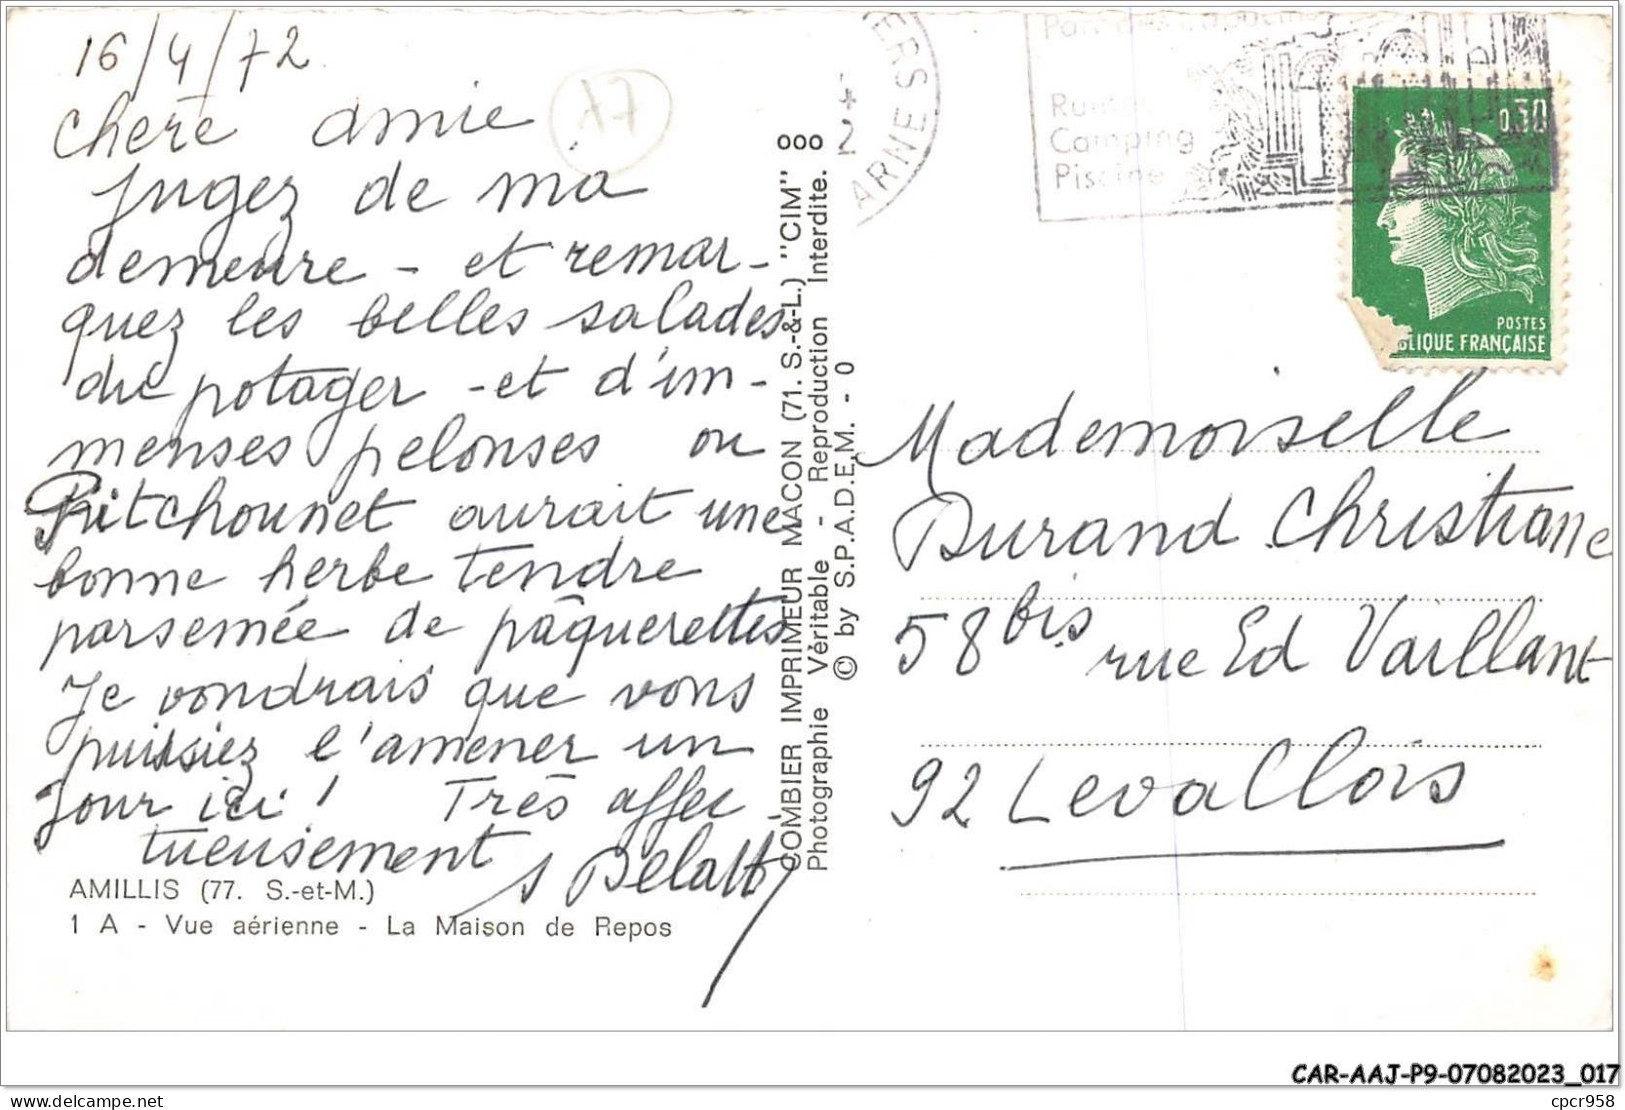 16/4/72
77
Chère amie
Jugez de ma
demeure - et remar-
quez les belles salades
du potager - et d'im-
menses pelouses ou
Pitchounet aurait une
bonne herbe tendre
parsemée de pâquerettes
Je voudrais que vous
puissiez l'amener un
jour ici ! Très affec
tueusement
AMILLIS (77. S.-et-M.)
1 A - Vue aérienne - La Maison de Repos
COMBIER IMPRIMEUR MACON (71. S.-&-L.) "CIM" ooo
Photographie Véritable - Reproduction Interdite.
© by S.P.A.D.E.M. - 0
ERS
4
2
ARNE
Camping
Piscine
0,30
POSTES
BLIQUE FRANÇAISE
Mademoiselle
Durand Christiane
58 bis rue Ed Vaillant
92 Levallois
CAR-AAJ-P9-07082023_017
cpcr958